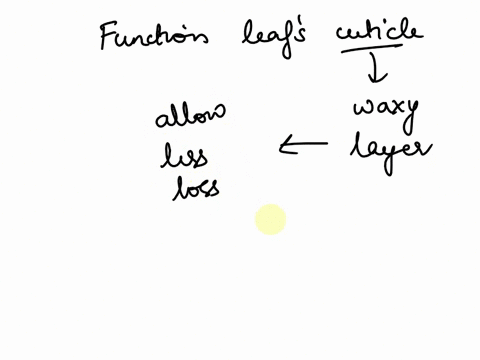 Function leaf's cuticle
waxy
layer
allow
less
loss